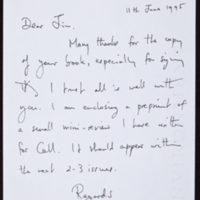 11th June 1995
Dear Jim,
Many thanks for the copy
of your book, especially for signing
it. I trust all is well with
you. I am enclosing a preprint of
a small mini-review I have written
for Cell. It should appear within
the next 2-3 issues.
Regards